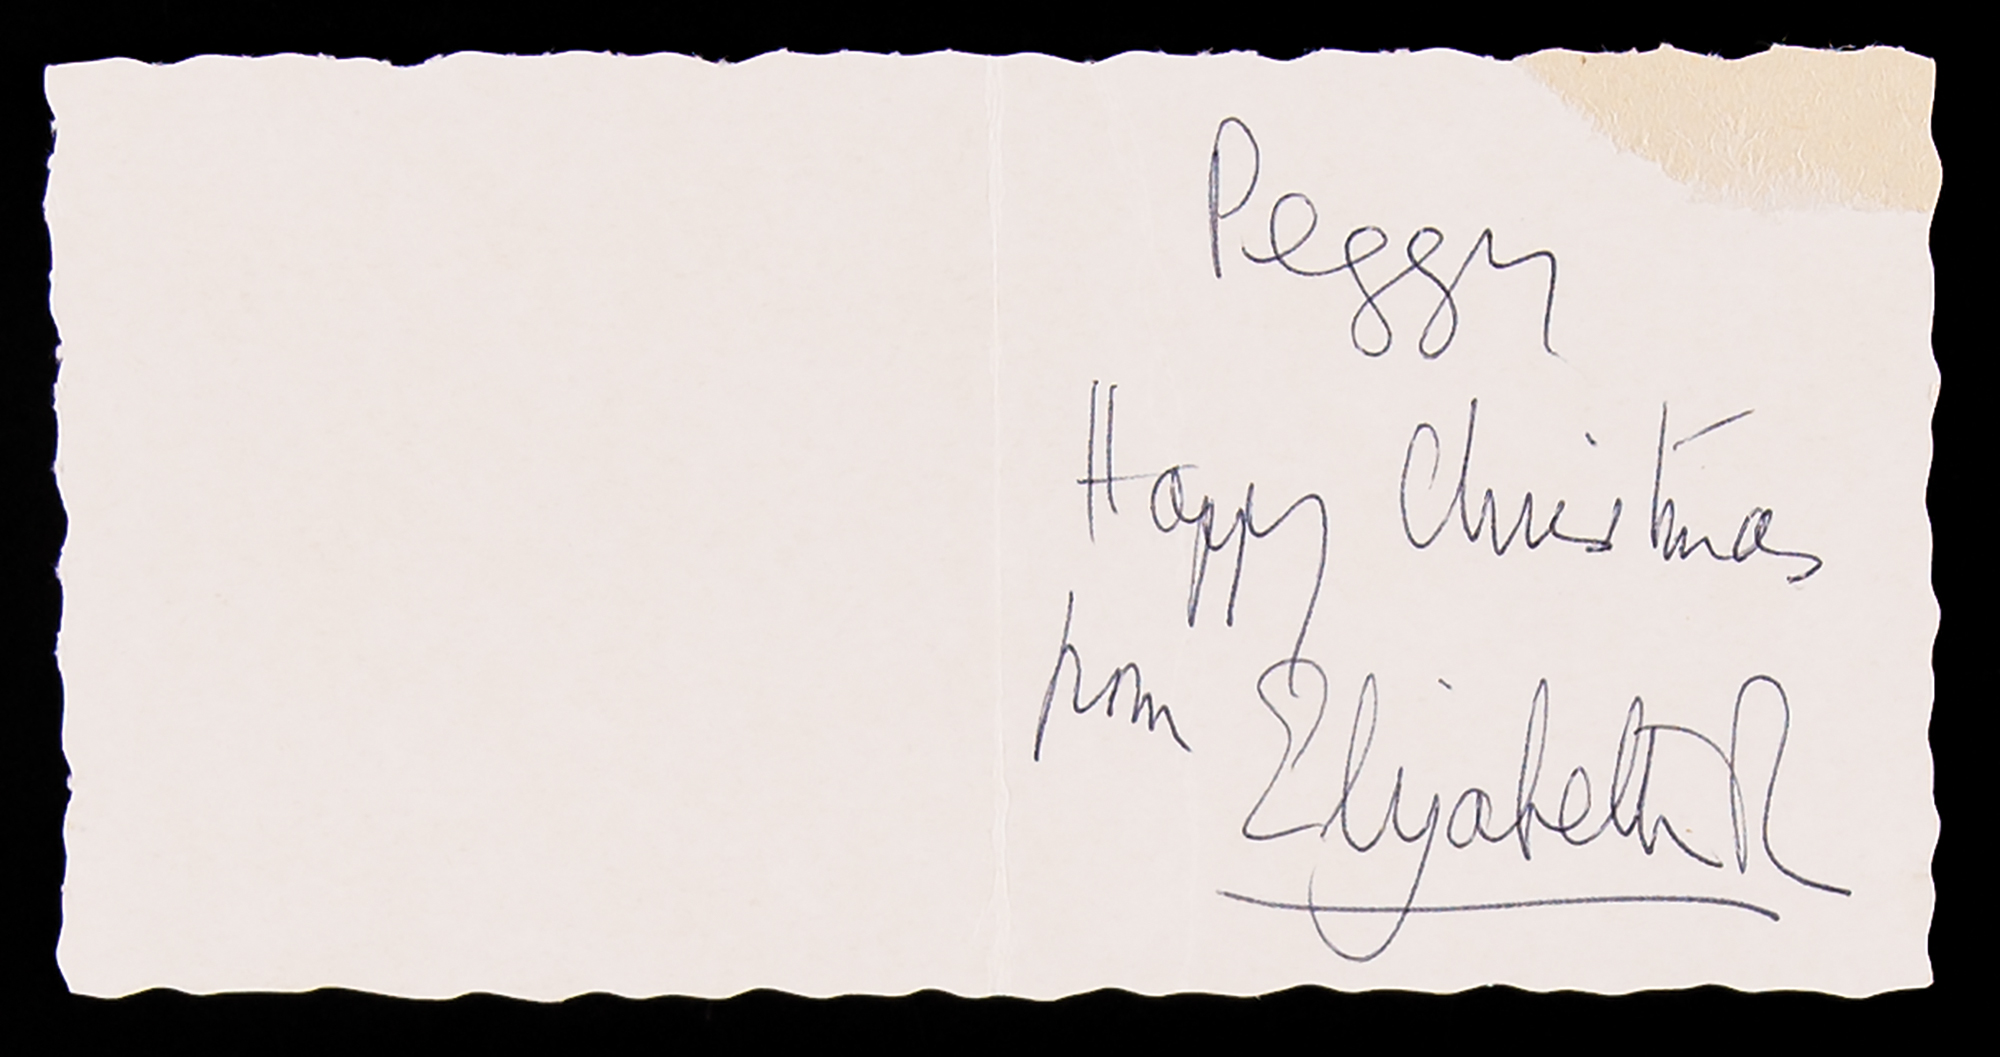 Peggy
Happy Christmas
from Elizabeth R